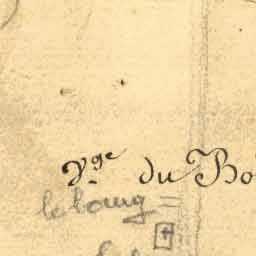 Vge du Bo
le bourg